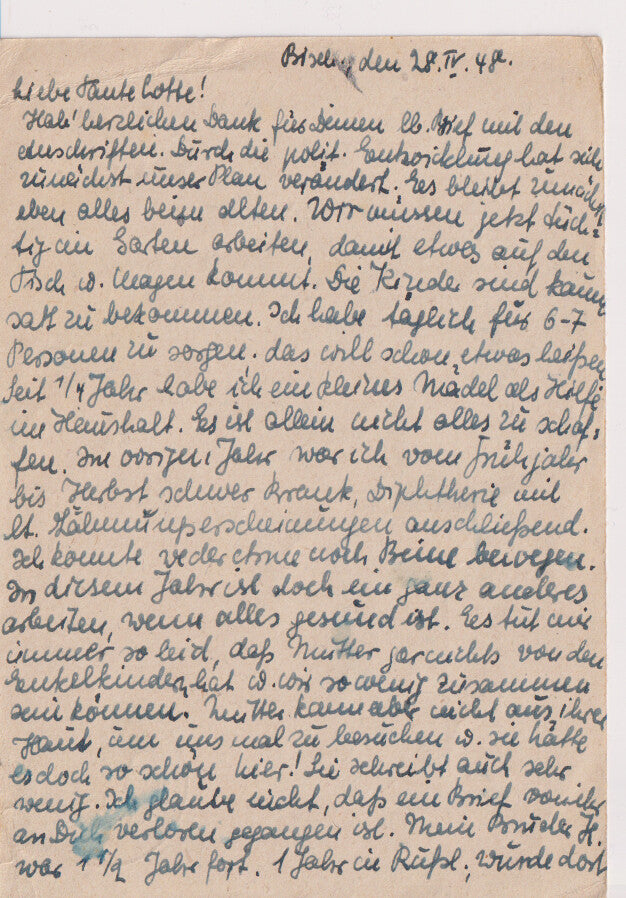 den 28.IV.48.
Liebe Tante Lotte!
Hab' herzlichen Dank für Deinen lb. Brief mit den
Anschriften. Durch die polit. Entwicklung hat sich
zunächst unser Plan verändert. Es bleibt zunächst
eben alles beim Alten. Wir müssen jetzt tüch-
tig im Garten arbeiten, damit etwas auf den
Tisch u. Magen kommt. Die Kinder sind kaum
satt zu bekommen. Ich habe täglich für 6-7
Personen zu sorgen. das will schon etwas heißen
Seit 1/4 Jahr habe ich ein kleines Mädel als Hilfe
im Haushalt. Es ist allein nicht alles zu schaf-
fen. Im vorigen Jahr war ich vom Frühjahr
bis Herbst schwer krank, Diphtherie mit
lt. Lähmungserscheinungen anschließend.
Ich konnte weder Arme noch Beine bewegen.
In diesem Jahr ist doch ein ganz anderes
arbeiten, wenn alles gesund ist. Es tut mir
immer so leid, daß Mutter garnichts von den
Enkelkindern hat u. wir so wenig zusammen
sein können. Mutter kann aber nicht aus ihrer
Haut, um uns mal zu besuchen u. sie hätte
es doch so schön hier! Sie schreibt auch sehr
wenig. Ich glaube nicht, daß ein Brief von ihr
an Dich verloren gegangen ist. Mein Bruder H.
war 1 1/2 Jahr fort. 1 Jahr in Rußl., wurde dort